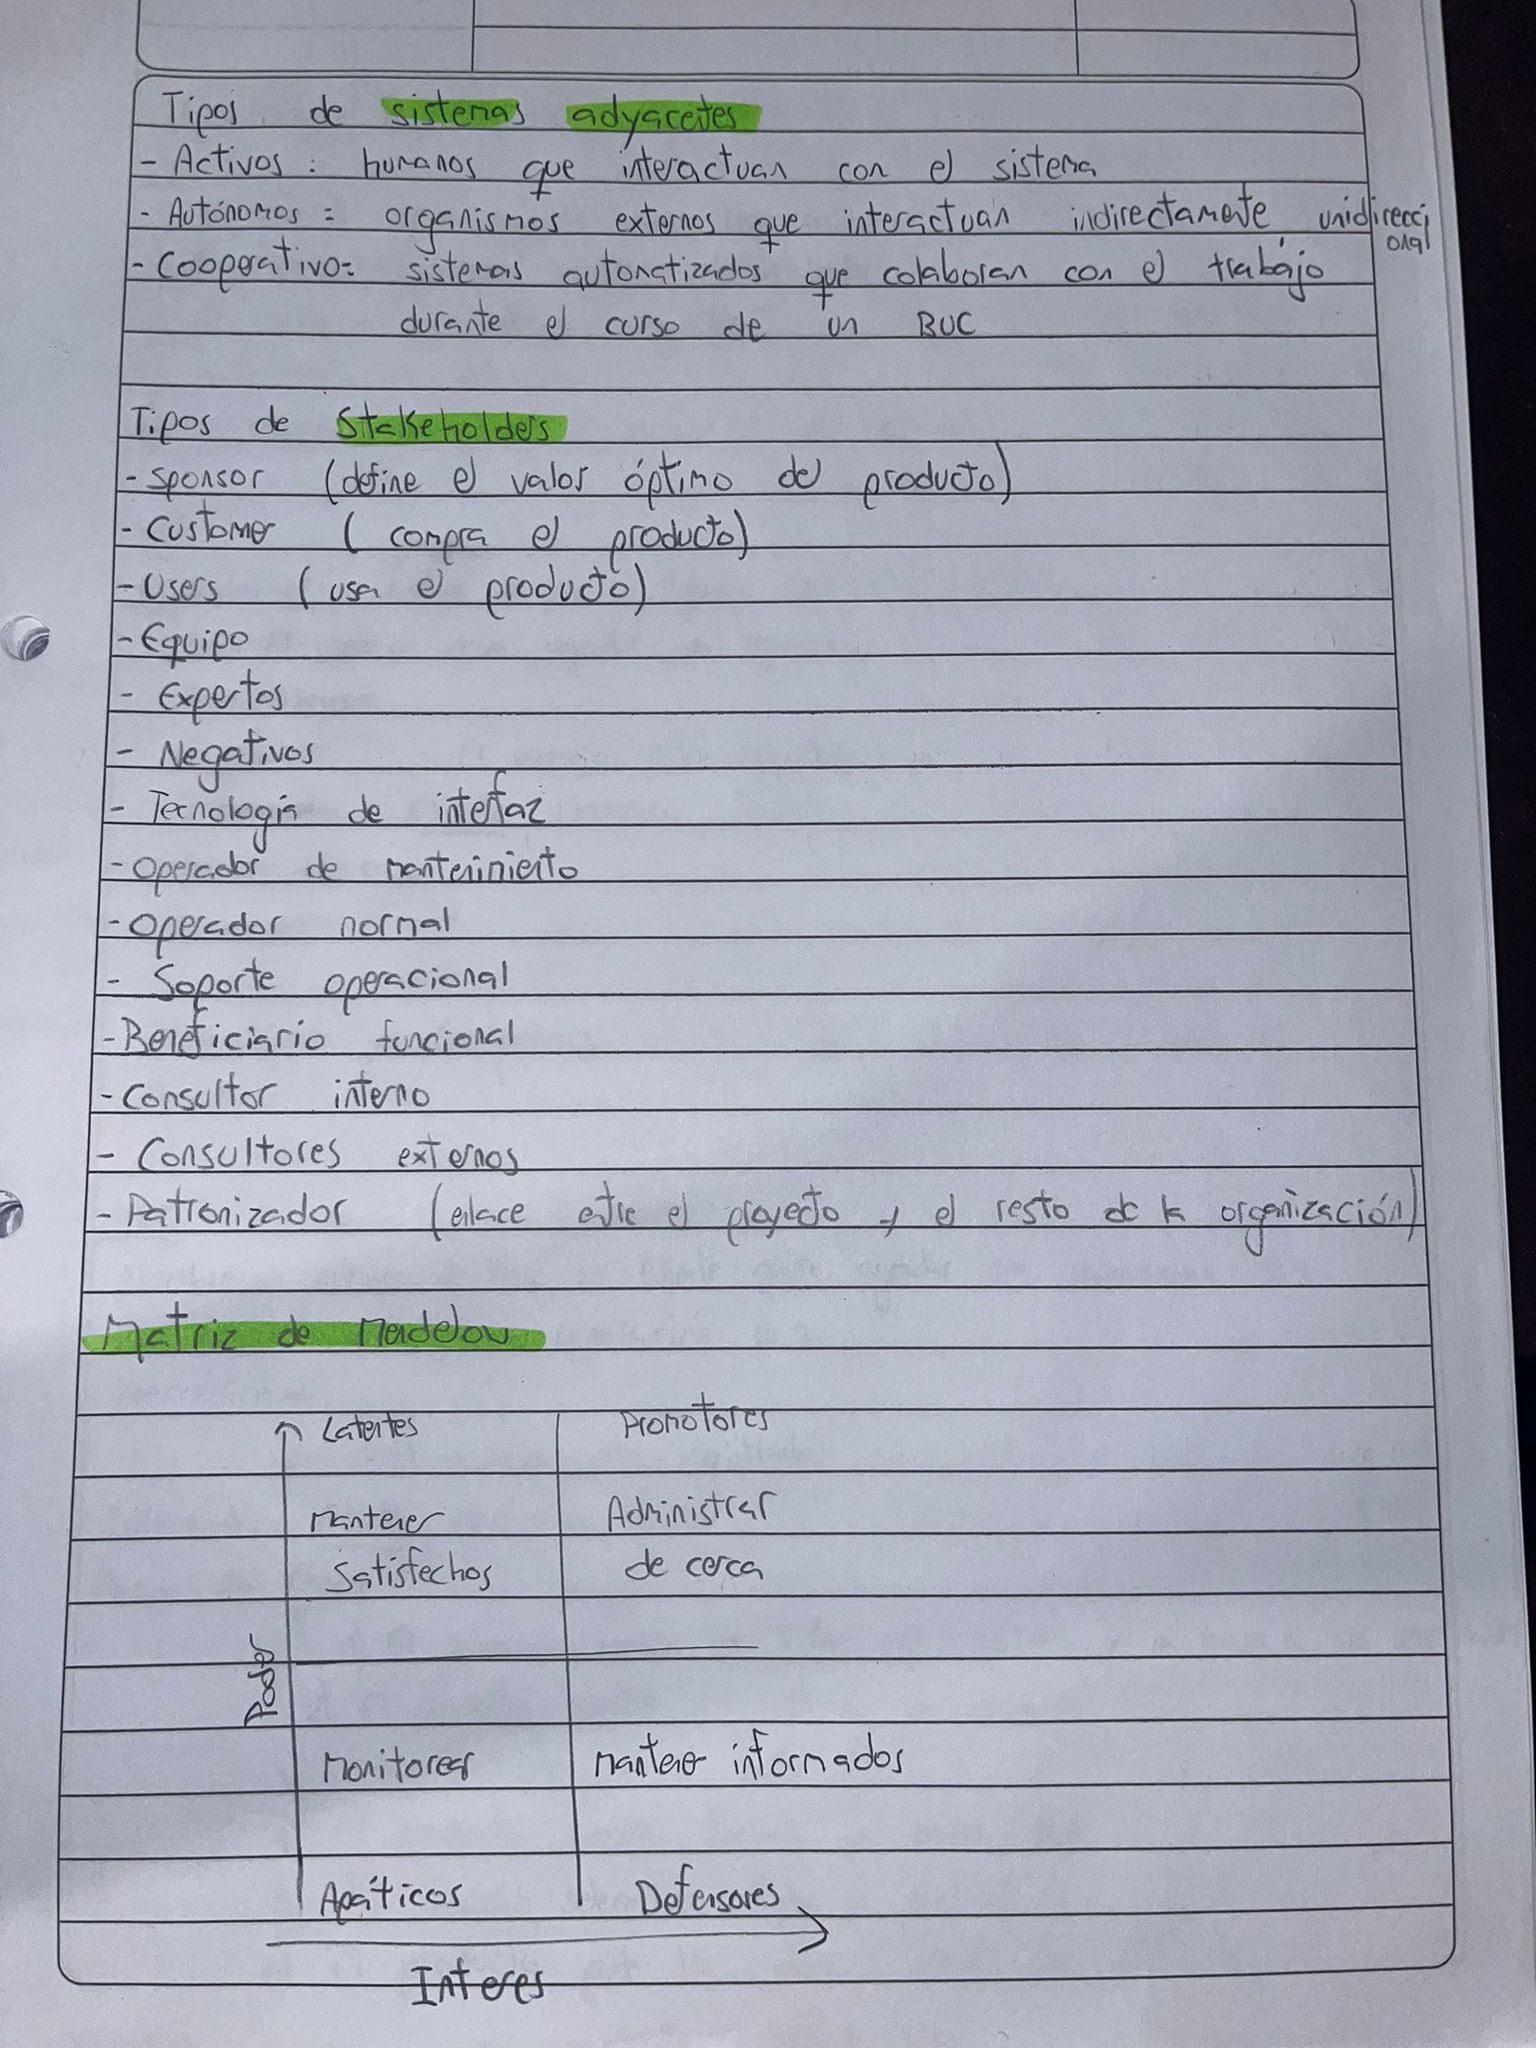 Tipos de sistemas adyacetes
- Activos : humanos que interactuan con el sistema
- Autónomos = organismos externos que interactuan indirectamente unidirecci
onal
- Cooperativo = sistemas automatizados que colaboran con el trabajo
durante el curso de un BUC
Tipos de Stakeholders
- sponsor (define el valor óptimo del producto)
- Customer ( compra el producto)
- Users ( usa el producto)
- Equipo
- Expertos
- Negativos
- Tecnología de interfaz
- Operador de mantenimiento
- Operador normal
- Soporte operacional
- Beneficiario funcional
- Consultor interno
- Consultores externos
- Patronizador (enlace entre el proyecto y el resto de la organización)
Matriz de Mendelow
Latentes Promotores
Mantener Administrar
Satisfechos de cerca
Poder
Monitorear Mantener informados
Apáticos Defensores
Interes